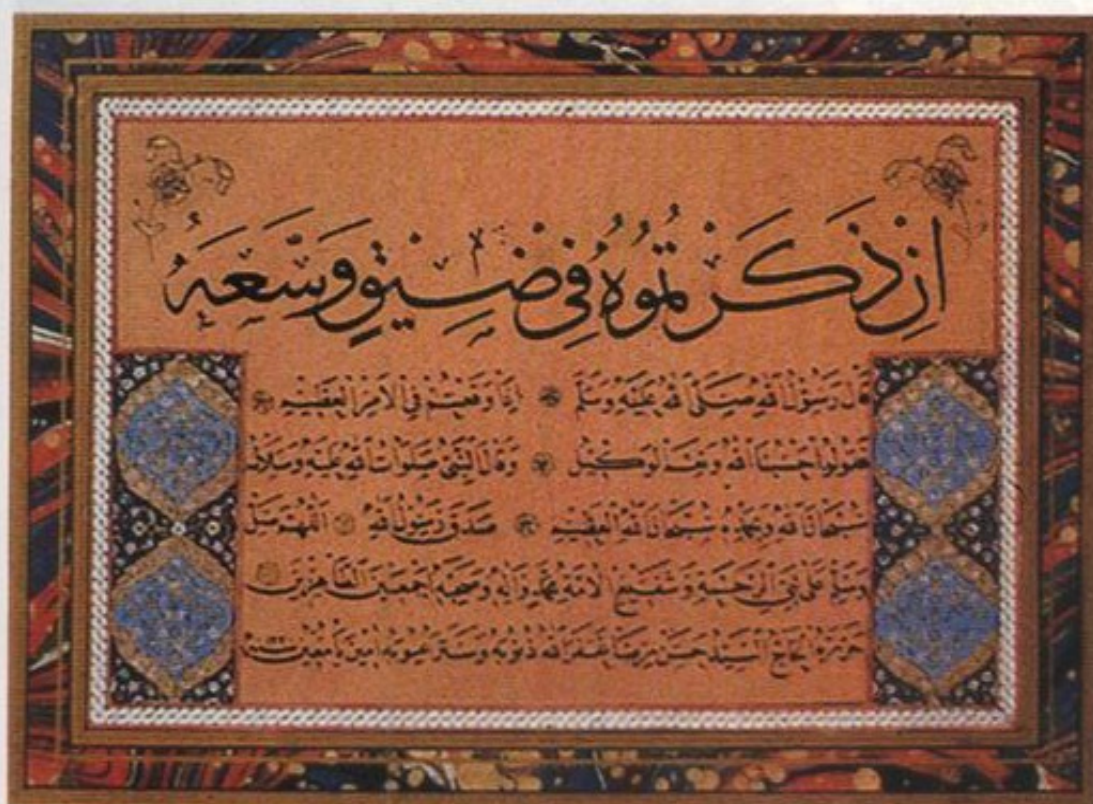 اِنْ ذَكَرْتُمُوهُ فِي ضِيْقٍ وَسَّعَهُ
قَالَ رَسُولُ اللهِ صَلَّى اللهُ عَلَيْهِ وَسَلَّمَ اِذَا وَقَعْتُمْ فِي الْاَمْرِ الْعَظِيمِ
فَقُولُوا حَسْبُنَا اللهُ وَنِعْمَ الْوَكِيلُ وَقَالَ النَّبِيُّ صَلَوَاتُ اللهِ عَلَيْهِ وَسَلَامُهُ
سُبْحَانَ اللهِ وَبِحَمْدِهِ سُبْحَانَ اللهِ الْعَظِيمِ صَدَقَ رَسُولُ اللهِ اَللّٰهُمَّ صَلِّ
وَسَلِّمْ عَلَى نَبِيِّ الرَّحْمَةِ وَشَفِيعِ الْاُمَّةِ مُحَمَّدٍ وَاٰلِهِ وَصَحْبِهِ اَجْمَعِينَ الطَّاهِرِينَ
حَرَّرَهُ الْحَاجُّ السَّيِّدُ حَسَنْ رِضَا غَفَرَ اللهُ ذُنُوبَهُ وَسَتَرَ عُيُوبَهُ اٰمِينَ يَا مُعِينُ